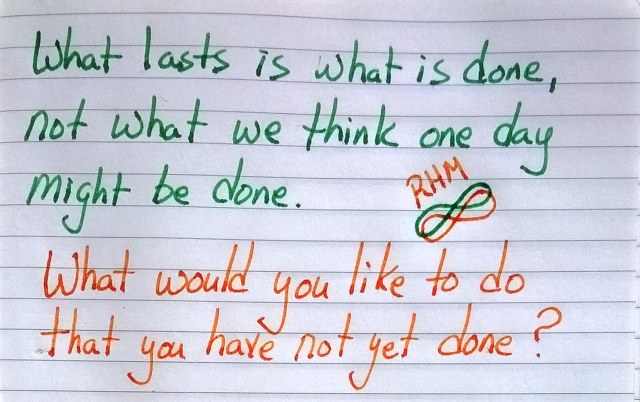 What lasts is what is done,
not what we think one day
might be done.
RHM
What would you like to do
that you have not yet done?